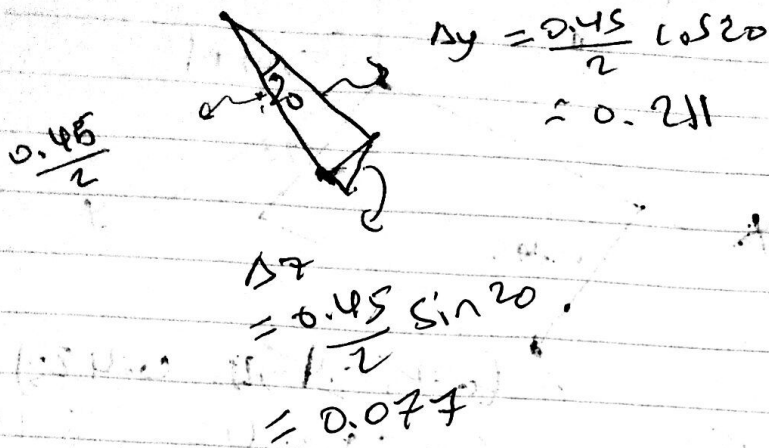 Δy = 0.45/2 cos20
= 0.211
20
0.45/2
Δz
= 0.45/2 sin20.
= 0.077